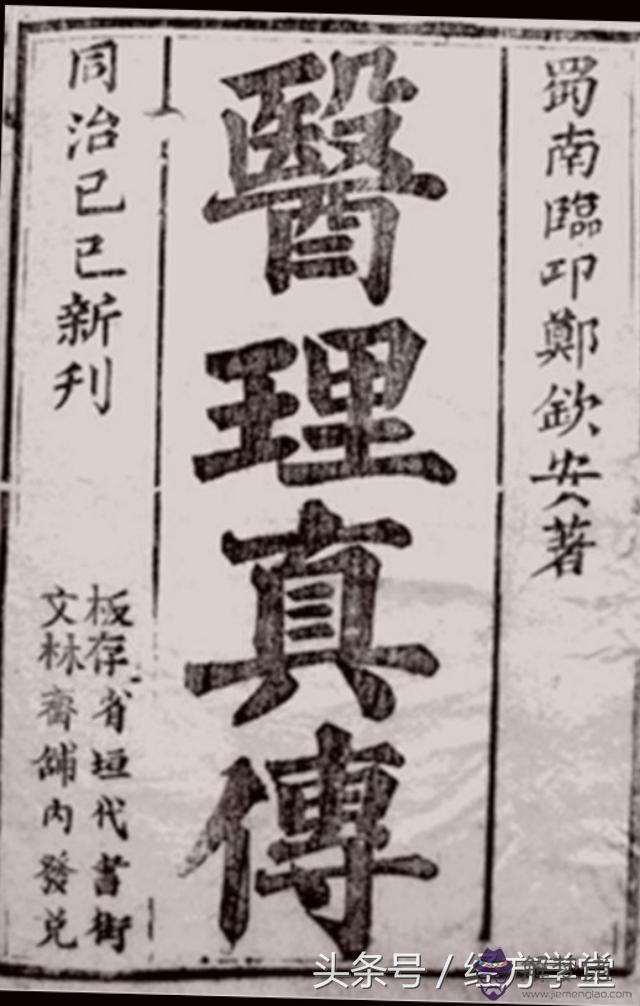 蜀南臨邛鄭欽安著
醫理真傳
同治己巳新刊
板存省垣代書街
文林齋舖內發兌
头条号 / 经方学堂
解梦佬
www.jiemenglao.com